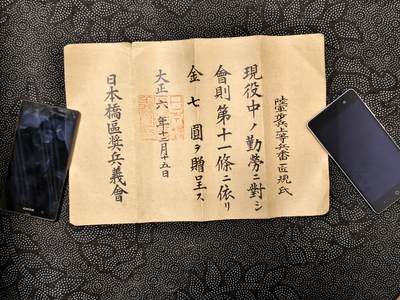 陸軍歩兵上等兵番匠規矩氏
現役中ノ勤勞ニ對シ
會則第十一條ニ依リ
金七圓ヲ贈呈ス
大正六年十二月十五日
日本橋區奬兵義會